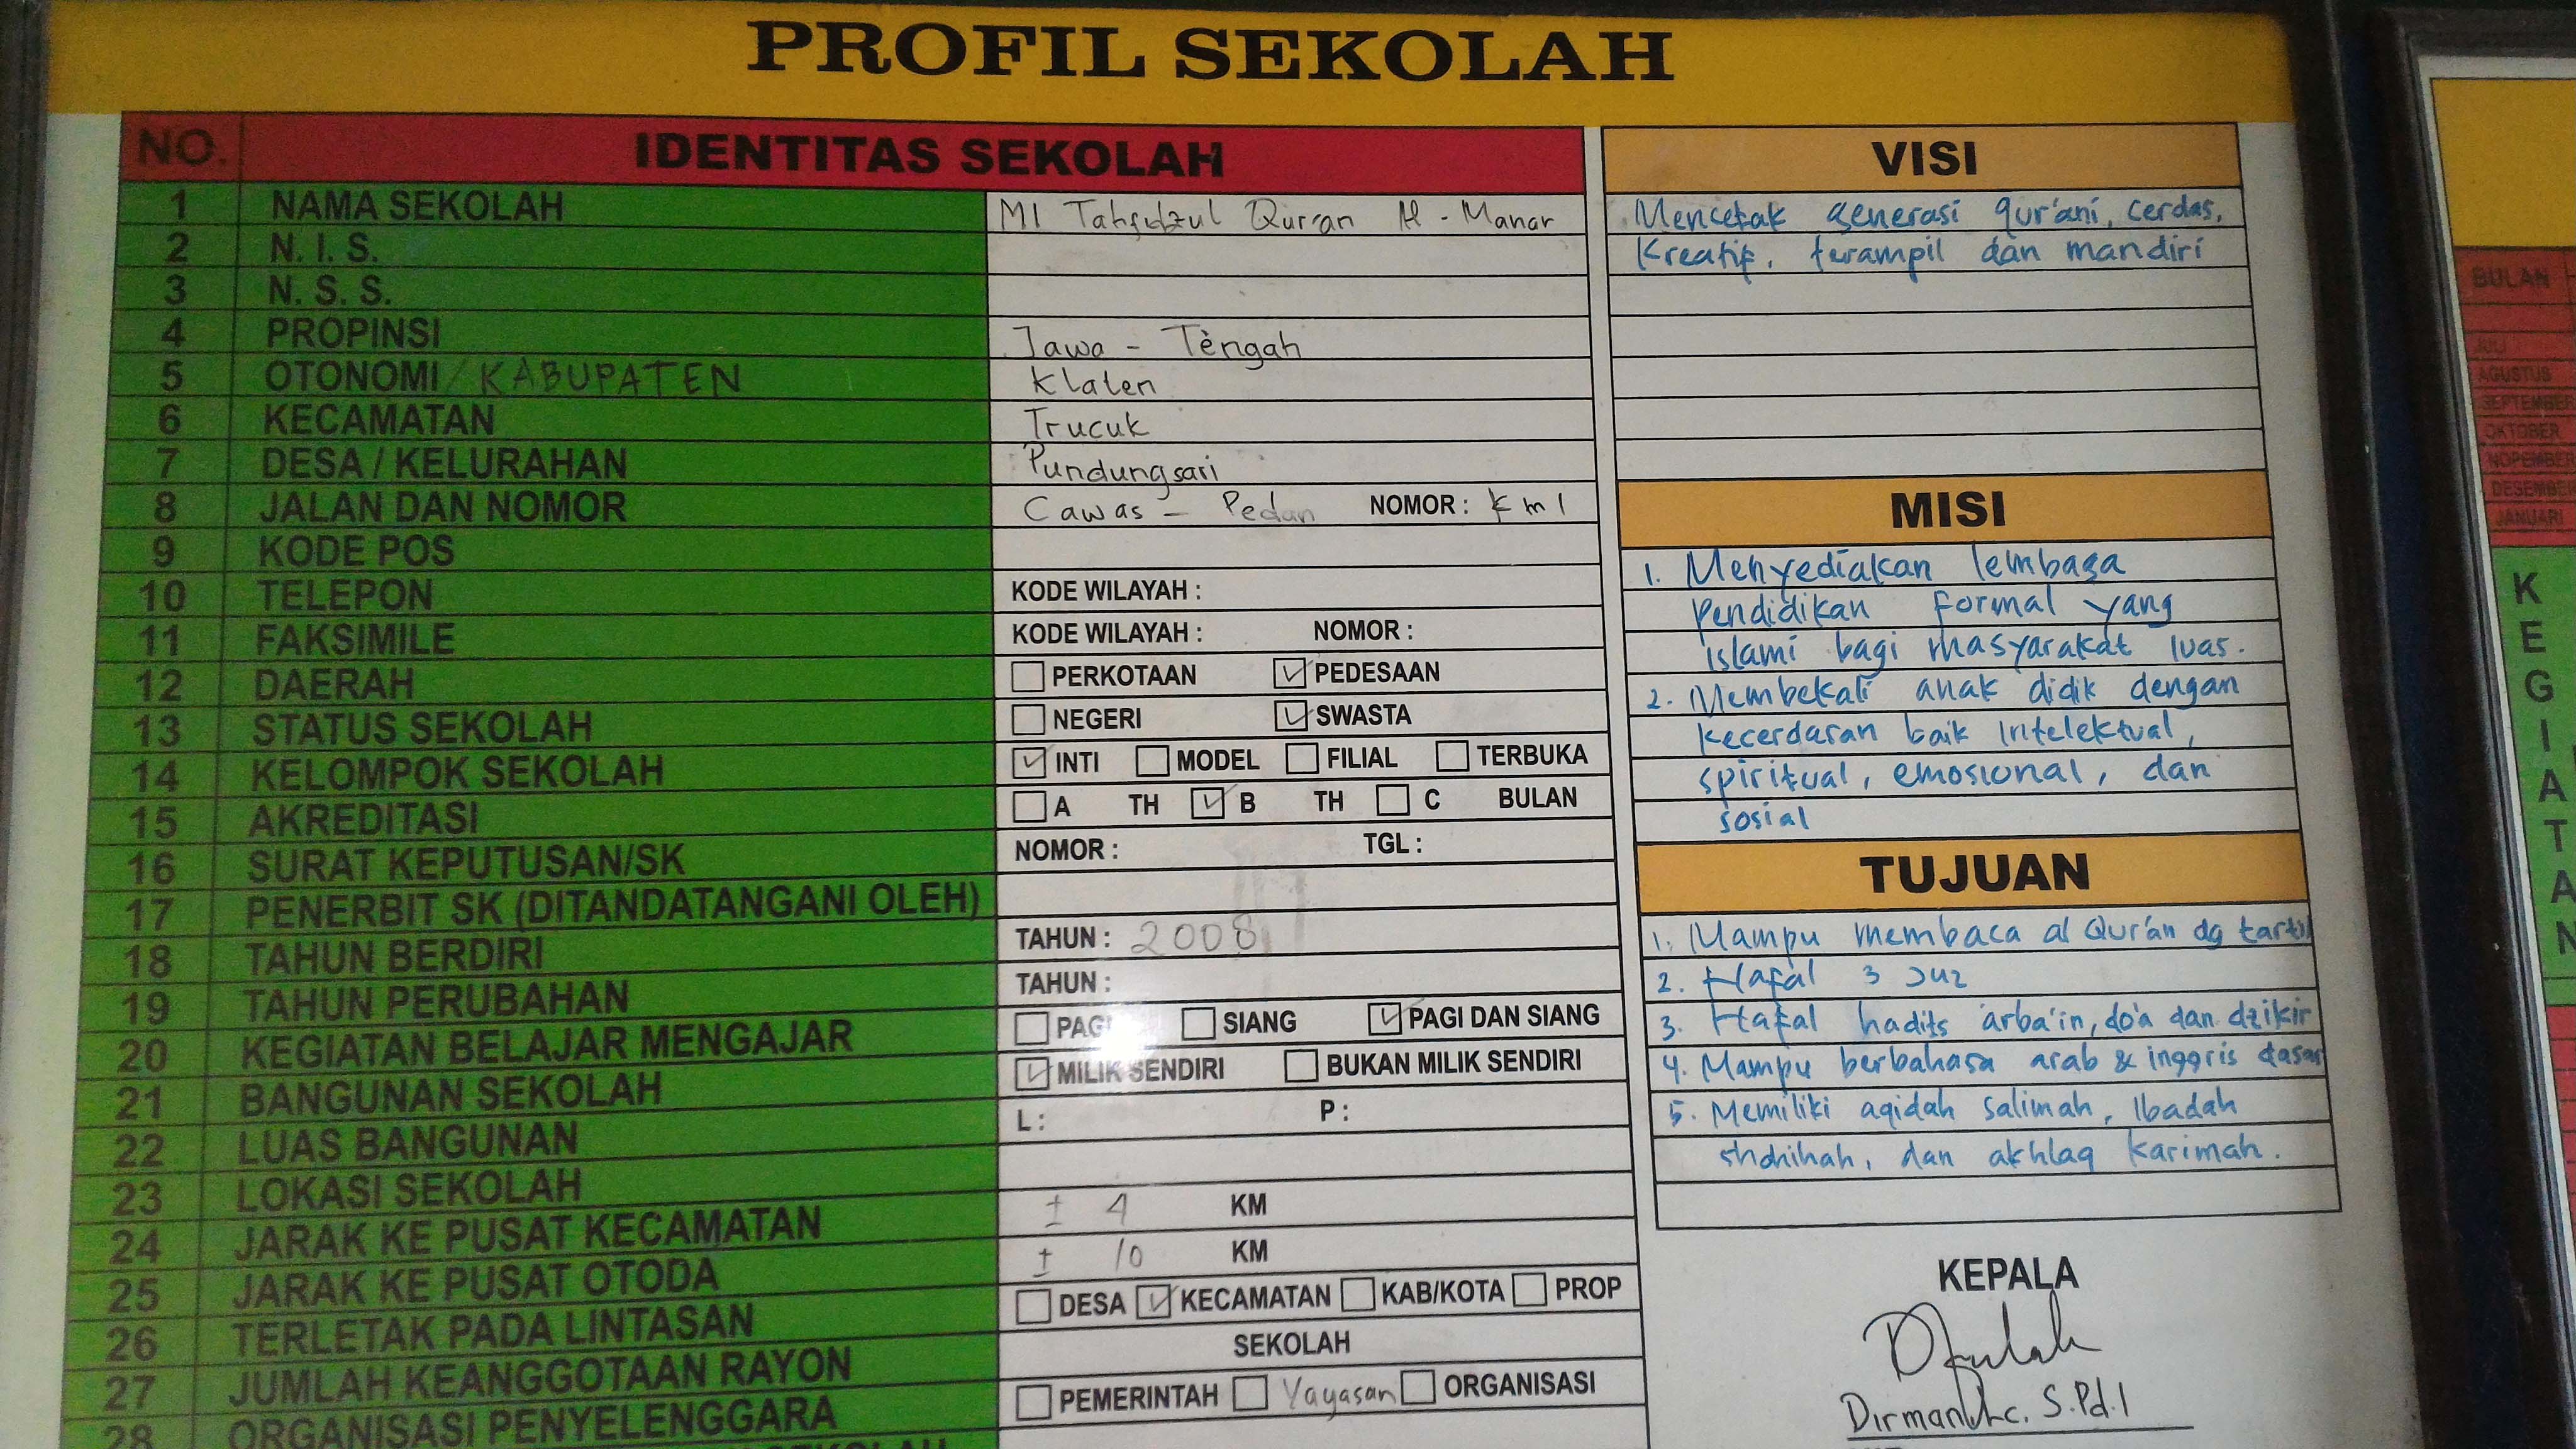 PROFIL SEKOLAH
NO. IDENTITAS SEKOLAH
1 NAMA SEKOLAH MI Tahfidzul Qur'an Al - Manar
2 N. I. S.
3 N. S. S.
4 PROPINSI Jawa - Tengah
5 OTONOMI / KABUPATEN Klaten
6 KECAMATAN Trucuk
7 DESA / KELURAHAN Pundungsari
8 JALAN DAN NOMOR Cawas - Pedan NOMOR : Km 1
9 KODE POS
10 TELEPON KODE WILAYAH :
11 FAKSIMILE KODE WILAYAH : NOMOR :
12 DAERAH PERKOTAAN PEDESAAN
13 STATUS SEKOLAH NEGERI SWASTA
14 KELOMPOK SEKOLAH INTI MODEL FILIAL TERBUKA
15 AKREDITASI A TH B TH C BULAN
16 SURAT KEPUTUSAN/SK NOMOR : TGL :
17 PENERBIT SK (DITANDATANGANI OLEH)
18 TAHUN BERDIRI TAHUN : 2008
19 TAHUN PERUBAHAN TAHUN :
20 KEGIATAN BELAJAR MENGAJAR PAGI SIANG PAGI DAN SIANG
21 BANGUNAN SEKOLAH MILIK SENDIRI BUKAN MILIK SENDIRI
22 LUAS BANGUNAN L : P :
23 LOKASI SEKOLAH
24 JARAK KE PUSAT KECAMATAN ± 4 KM
25 JARAK KE PUSAT OTODA ± 10 KM
26 TERLETAK PADA LINTASAN DESA KECAMATAN KAB/KOTA PROP
27 JUMLAH KEANGGOTAAN RAYON SEKOLAH
28 ORGANISASI PENYELENGGARA PEMERINTAH Yayasan ORGANISASI
VISI
Mencetak generasi qur'ani, cerdas,
Kreatif, terampil dan mandiri
MISI
1. Menyediakan lembaga
pendidikan formal yang
islami bagi masyarakat luas.
2. Membekali anak didik dengan
kecerdasan baik intelektual,
spiritual, emosional, dan
sosial
TUJUAN
1. Mampu membaca al Qur'an dg tartil
2. Hafal 3 Juz
3. Hafal hadits arba'in, do'a dan dzikir
4. Mampu berbahasa arab & inggris dasar
5. Memiliki aqidah salimah, Ibadah
shohihah, dan akhlaq karimah.
KEPALA
S.Pd.I
BULAN
JULI
AGUSTUS
SEPTEMBER
OKTOBER
NOPEMBER
DESEMBER
JANUARI
KEGIATAN